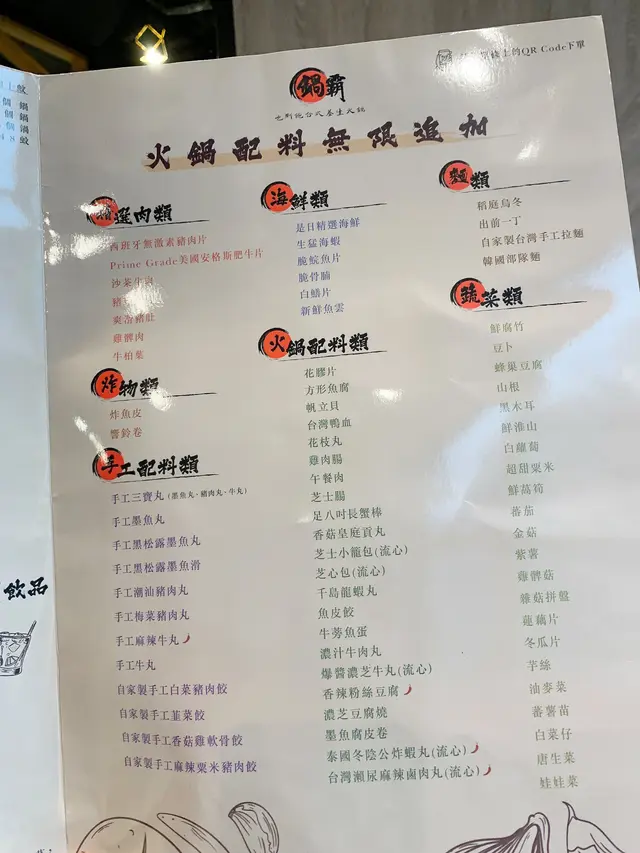 鍋霸
火鍋配料無限追加
精選肉類
西班牙無激素豬肉片
Prime Grade美國安格斯肥牛片
爽滑豬肚
雞髀肉
牛柏葉
炸物類
炸魚皮
響鈴卷
手工配料類
手工三寶丸(墨魚丸、豬肉丸、牛丸)
手工墨魚丸
手工黑松露墨魚丸
手工黑松露墨魚滑
手工潮汕豬肉丸
手工梅菜豬肉丸
手工麻辣牛丸
手工牛丸
自家製手工白菜豬肉餃
自家製手工韮菜餃
自家製手工香菇雞軟骨餃
自家製手工麻辣粟米豬肉餃
海鮮類
是日精選海鮮
生猛海蝦
脆鯇魚片
脆骨腩
白鱔片
新鮮魚雲
火鍋配料類
花膠片
方形魚腐
帆立貝
台灣鴨血
花枝丸
雞肉腸
午餐肉
芝士腸
足八吋長蟹棒
香菇皇庭貢丸
芝士小籠包(流心)
芝心包(流心)
千島龍蝦丸
魚皮餃
牛蒡魚蛋
濃汁牛肉丸
爆醬濃芝牛丸(流心)
香辣粉絲豆腐
濃芝豆腐燒
墨魚腐皮卷
泰國冬陰公炸蝦丸(流心)
台灣瀨尿麻辣鹵肉丸(流心)
麵類
稻庭烏冬
出前一丁
自家製台灣手工拉麵
韓國部隊麵
蔬菜類
鮮腐竹
豆卜
蜂巢豆腐
山根
黑木耳
鮮淮山
白蘿蔔
超甜粟米
鮮萵筍
蕃茄
金菇
紫薯
雞髀菇
雜菇拼盤
蓮藕片
冬瓜片
芋絲
油麥菜
蕃薯苗
白菜仔
唐生菜
娃娃菜
飲品